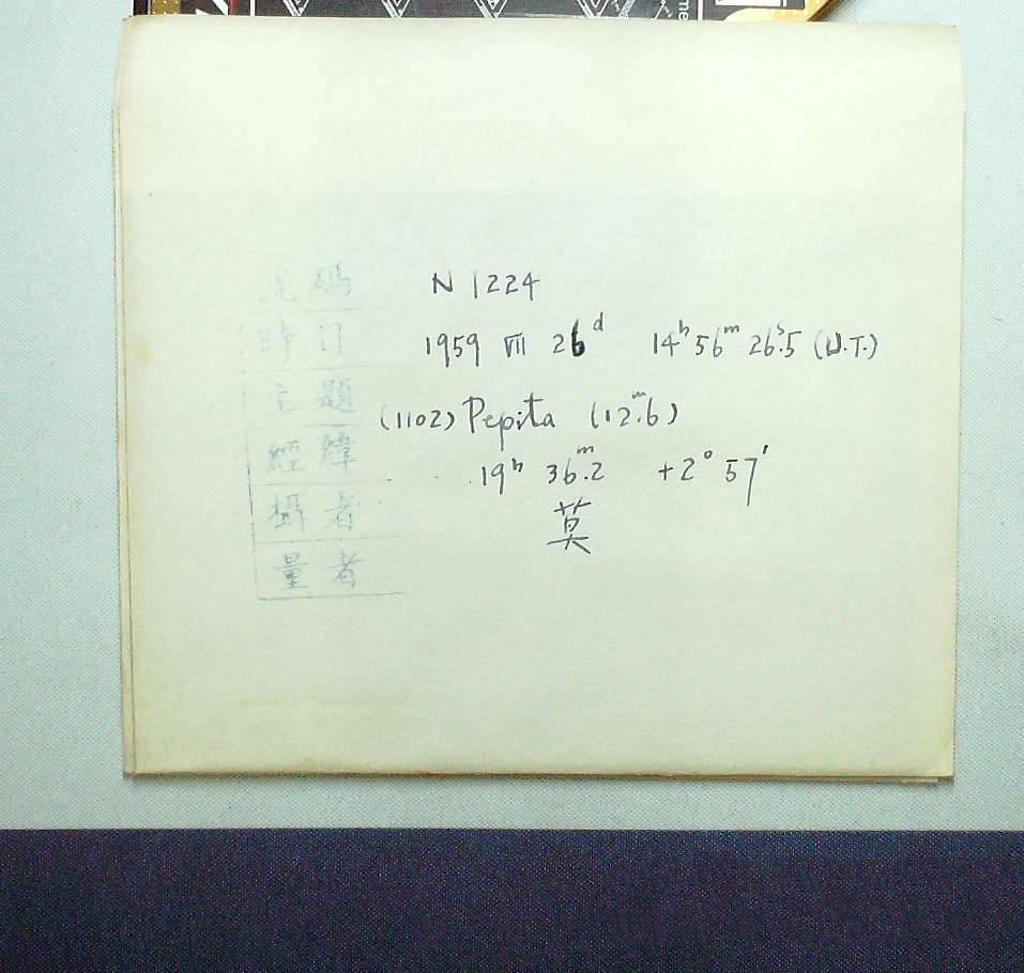 號碼 N 1224
時日 1959 Ⅶ 26ᵈ 14ʰ 56ᵐ 26ˢ.5 (U.T.)
主題 (1102) Pepita (12ᵐ.6)
經緯 19ʰ 36ᵐ.2 +2° 57′
攝者 莫
量者